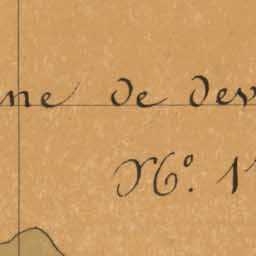 ne de dev
N.º 1